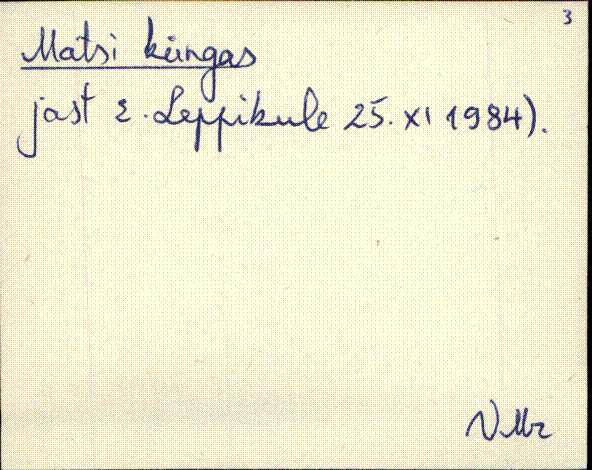 3
Matsi küngas
jast E. Leppikule 25. XI 1984).
VMz